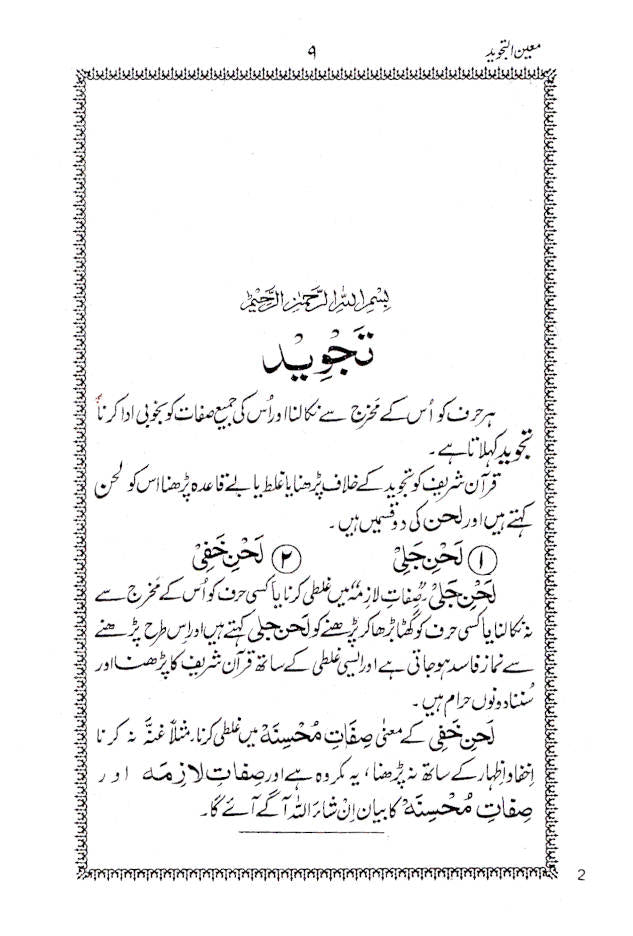 معین التجوید
۹
بِسْمِ اللهِ الرَّحْمٰنِ الرَّحِيْمِ
تَجْوِیْد
ہر حرف کو اُس کے مَخرج سے نکالنا اور اُس کی جمیع صفات کو بخوبی ادا کرنا
تجوید کہلاتا ہے۔
قرآن شریف کو تجوید کے خلاف پڑھنا یا غلط یا بے قاعدہ پڑھنا اس کو لحن
کہتے ہیں اور لحن کی دو قسمیں ہیں۔
۱ لَحْنِ جَلِیْ ۲ لَحْنِ خَفِیْ
لَحْنِ جَلِیْ۔ صِفَاتِ لازِمَہْ میں غلطی کرنا یا کسی حرف کو اُس کے مَخرج سے
نہ نکالنا یا کسی حرف کو گھٹا بڑھا کر پڑھنے کو لَحنِ جلی کہتے ہیں اور اِس طرح پڑھنے
سے نماز فاسد ہو جاتی ہے اور ایسی غلطی کے ساتھ قرآن شریف کا پڑھنا اور
سُننا دونوں حرام ہیں۔
لَحنِ خَفِی کے معنیٰ صِفَاتِ مُحْسِنَہْ میں غلطی کرنا، مثلاً غنّہ نہ کرنا
اِخفا و اِظہار کے ساتھ نہ پڑھنا، یہ مکروہ ہے اور صِفَاتِ لازِمَہ اور
صِفَاتِ مُحْسِنَہْ کا بیان اِنْ شَاءَ اللّٰہ آگے آئے گا۔
2